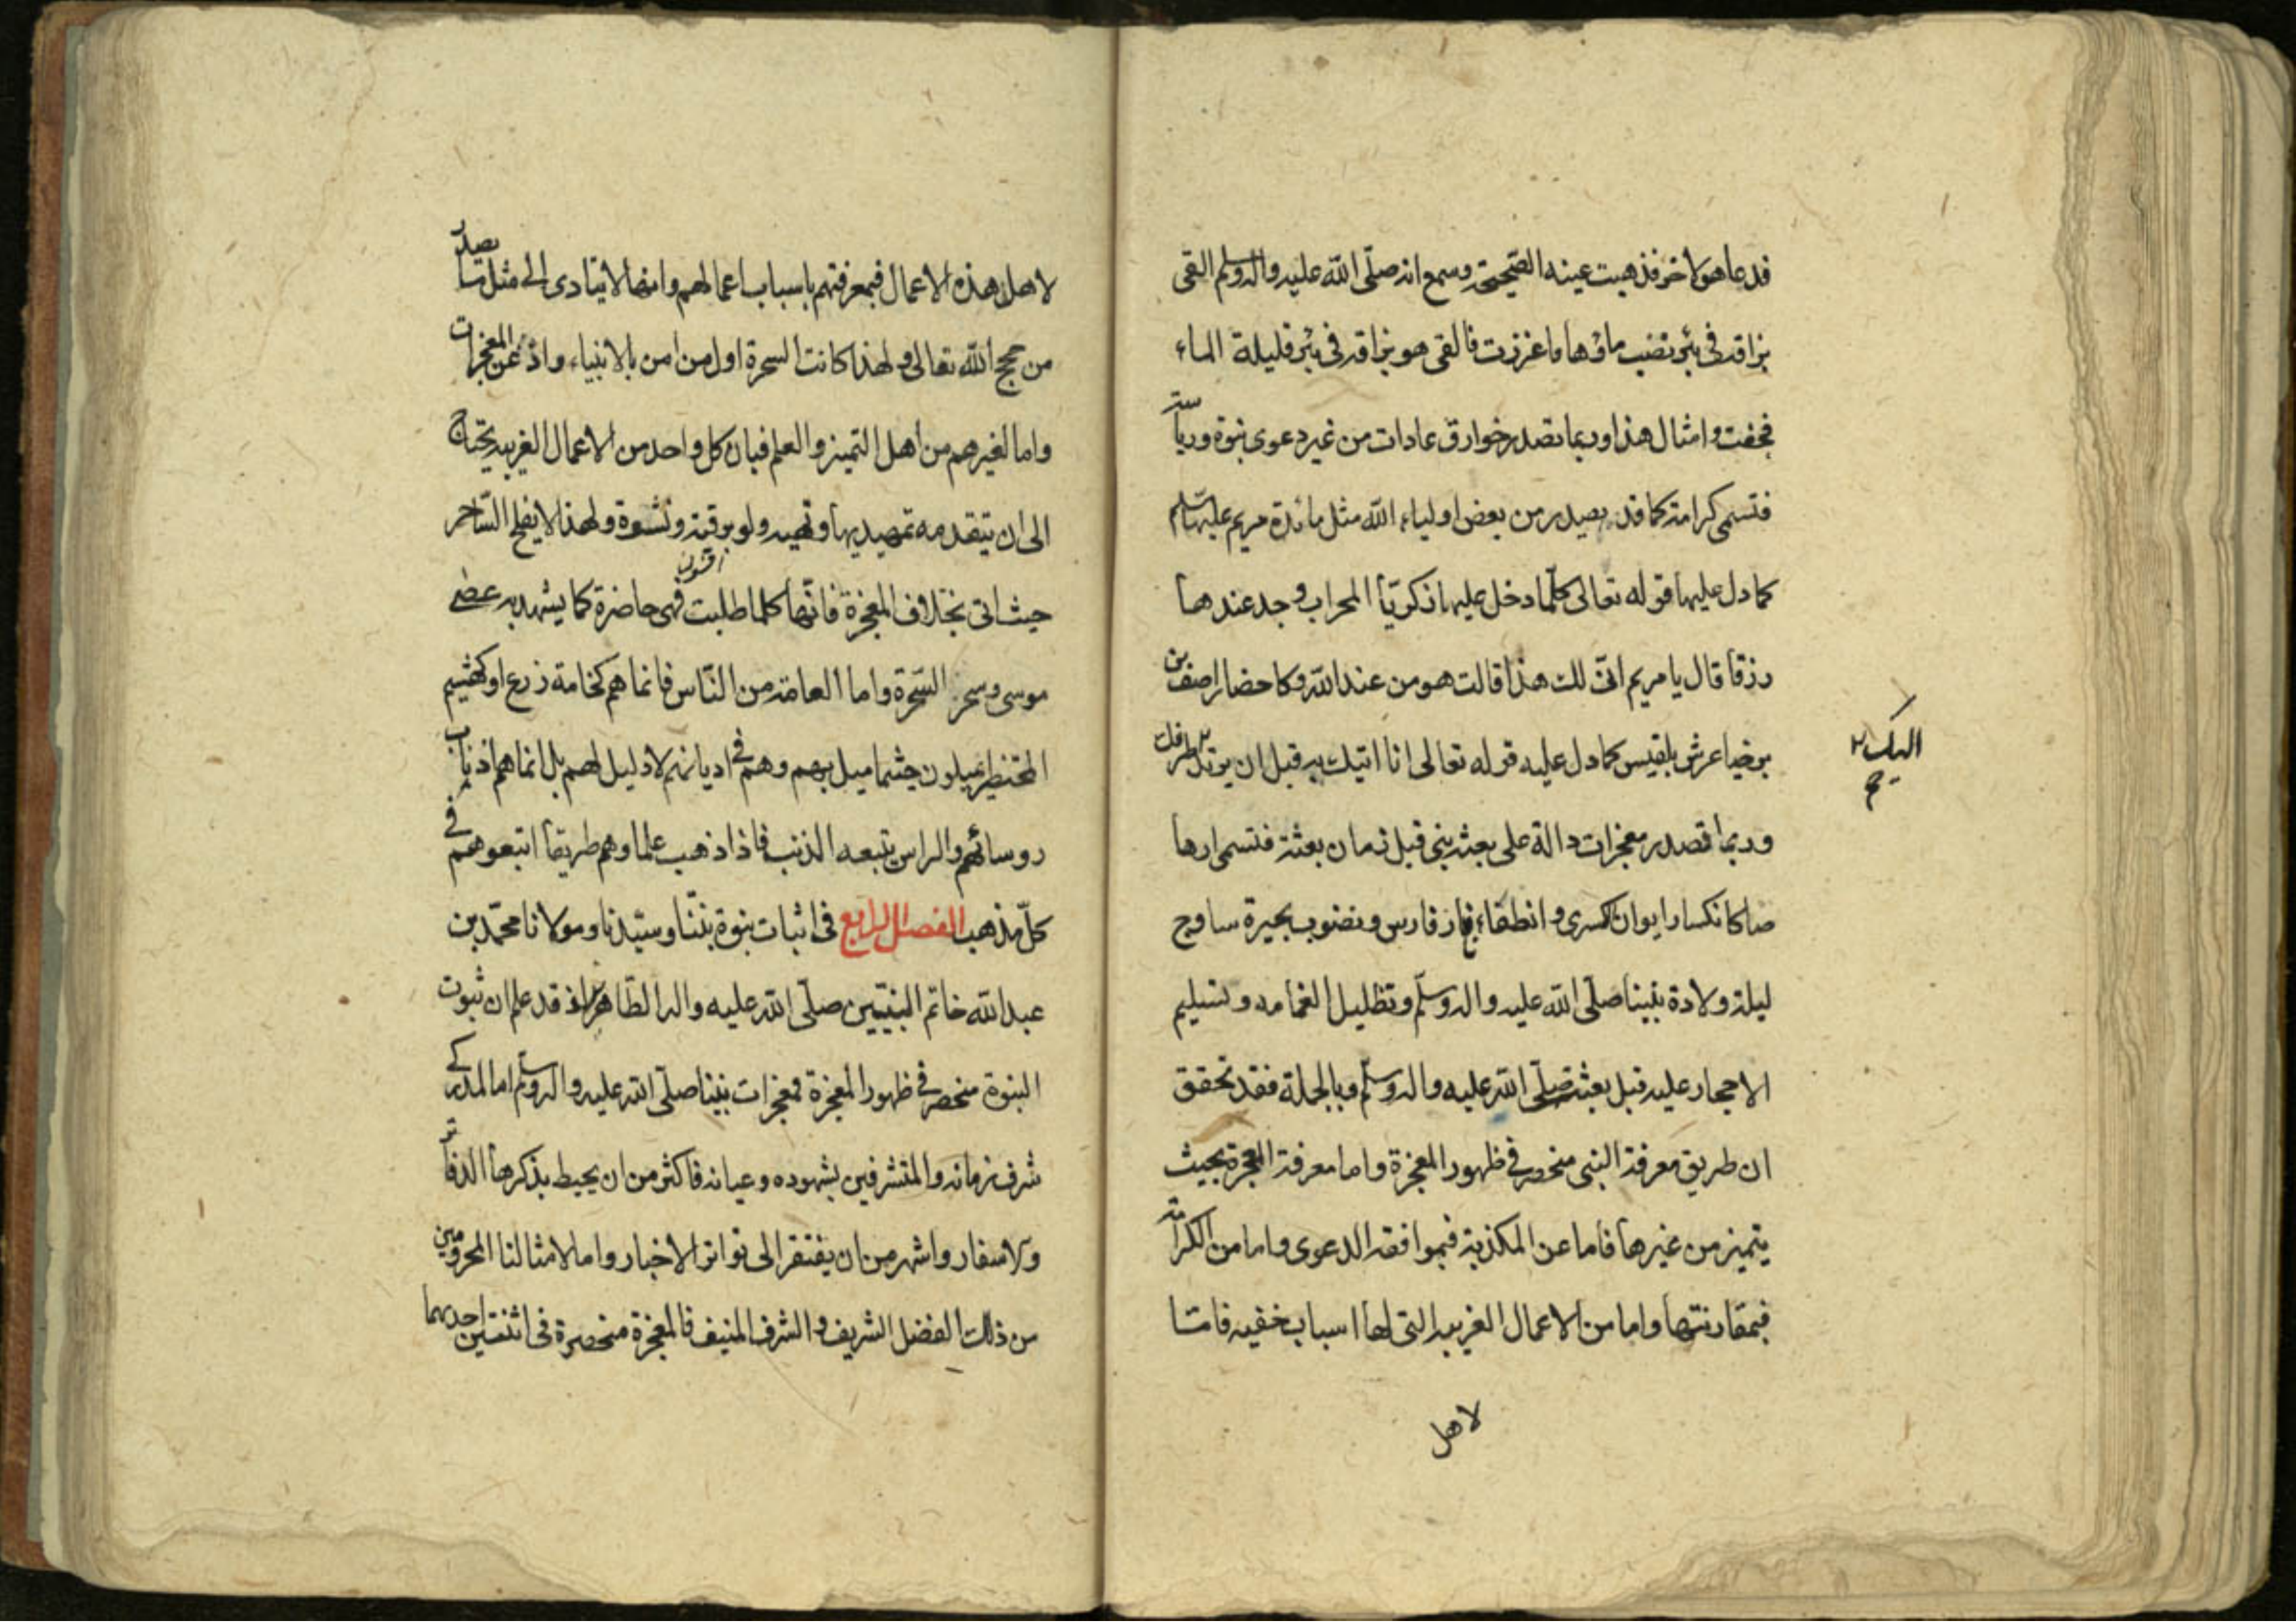 فدعا هو لاخر فذهبت عينه الصحيحة وسمع انه صلّى الله عليه واله وسلم القى
بزاقه فى بئر نضب ماؤها فاغزرت فالقى هو بزاقه فى بئر قليلة الماء
فجفت وامثال هذا وربما تصدر خوارق عادات من غير دعوى نبوة ورياسة
فتسمى كرامة كما قد يصدر من بعض اولياء الله مثل مائدة مريم عليها سلم
كما دل عليها قوله تعالى كلّما دخل عليها زكريّا المحراب وجد عندها
رزقا قال يا مريم انّى لك هذا قالت هو من عند الله وكاحضار اصف بن
برخيا عرش بلقيس كما دل عليه قوله تعالى انا اتيك به قبل ان يرتد طرفك
اليك
وربما تصدر معجزات دالة على بعثة نبى قبل زمان بعثته فتسمى ارها
صا كانكسار ايوان كسرى وانطفاء نار فارس ونضوب بحيرة ساوج
ليلة ولادة نبينا صلّى الله عليه واله وسلّم وتظليل الغمامه وتسليم
الاحجار عليه قبل بعثته صلّى الله عليه واله وسلّم وبالجملة فقد تحقق
ان طريق معرفة النبى منحصر فى ظهور المعجزة واما معرفة المعجزة بحيث
يتميز من غيرها فاما عن المكذبة فبموافقة الدعوى واما من الكرامة
فبمقارنتها واما من الاعمال الغريبه التى لها اسباب خفيه فامّا
لاهل
لاهل هذه الاعمال فبمعرفتهم باسباب اعمالهم وانها لا يتادى الى مثل ما يصدر
من حجج الله تعالى ولهذا كانت السحرة اول من امن بالانبياء واذعن المعجزات
واما لغيرهم من اهل التميز والعلم فبان كل واحد من الاعمال الغريبه يحتاج
الى ان يتقدمه تمهيد يهاوتهيه ولو برقية ونشوة ولهذا لا يفلح السّاحر
حيث اتى بخلاف المعجزة فانّها كلما طلبت فهى حاضرة كما يشهد به عصى
موسى وسحر السّحرة واما العامة من النّاس فانما هم كخامة زرع او كهشيم
المحتظر يميلون حيثما ميل بهم وهم فى اديانهم لا دليل لهم بل انما هم اذناب
روسائهم والراس يتبعه الذنب فاذا ذهب علماوهم طريقا اتبعوهم فى
كلّ مذهب الفصل الرابع فى اثبات نبوة نبيّنا وسيّدنا ومولانا محمّد بن
عبد الله خاتم النبيّين صلّى الله عليه واله الطّاهرين اذ قد علم ان ثبوت
النبوة منحصر فى ظهور المعجزة فمعجزات نبينا صلّى الله عليه واله وسلّم اما لمدركى
شرف زمانه والمتشرفين بشهوده وعيانه فاكثر من ان يحيط بذكرها الدفاتر
والاسفار واشهر من ان يفتقر الى تواتر الاخبار واما لامثالنا المحرومين
من ذلك الفضل الشريف والشرف المنيف فالمعجزة منحصرة فى اثنتين احديهما